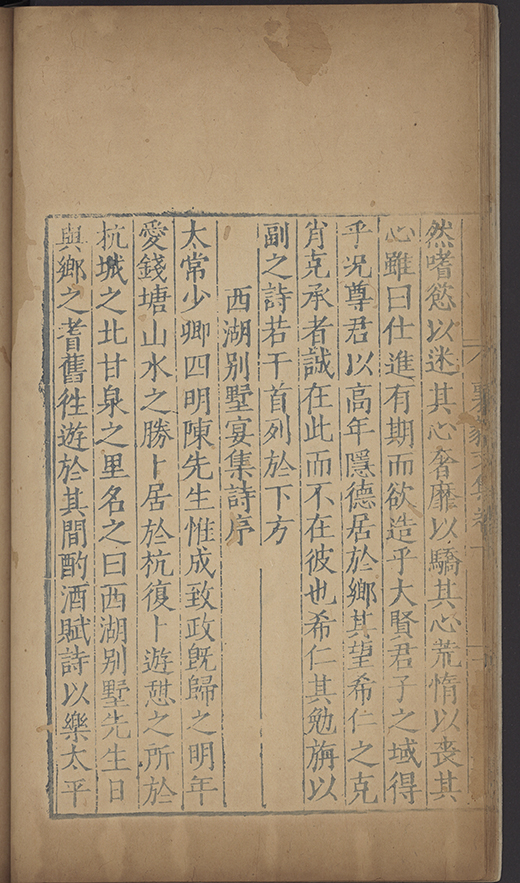 然嗜慾以迷其心奢靡以驕其心荒惰以喪其
心雖曰仕進有期而欲造乎大賢君子之域得
乎况尊君以高年隱德居於鄉其望希仁之克
肖克承者誠在此而不在彼也希仁其勉旃以
副之詩若干首列於下方
西湖别墅宴集詩序
太常少卿四明陳先生惟成致政旣歸之明年
愛錢塘山水之勝卜居於杭復卜遊憇之所於
杭城之北甘泉之里名之曰西湖别墅先生日
與鄉之耆舊徃遊於其間酌酒賦詩以樂太平